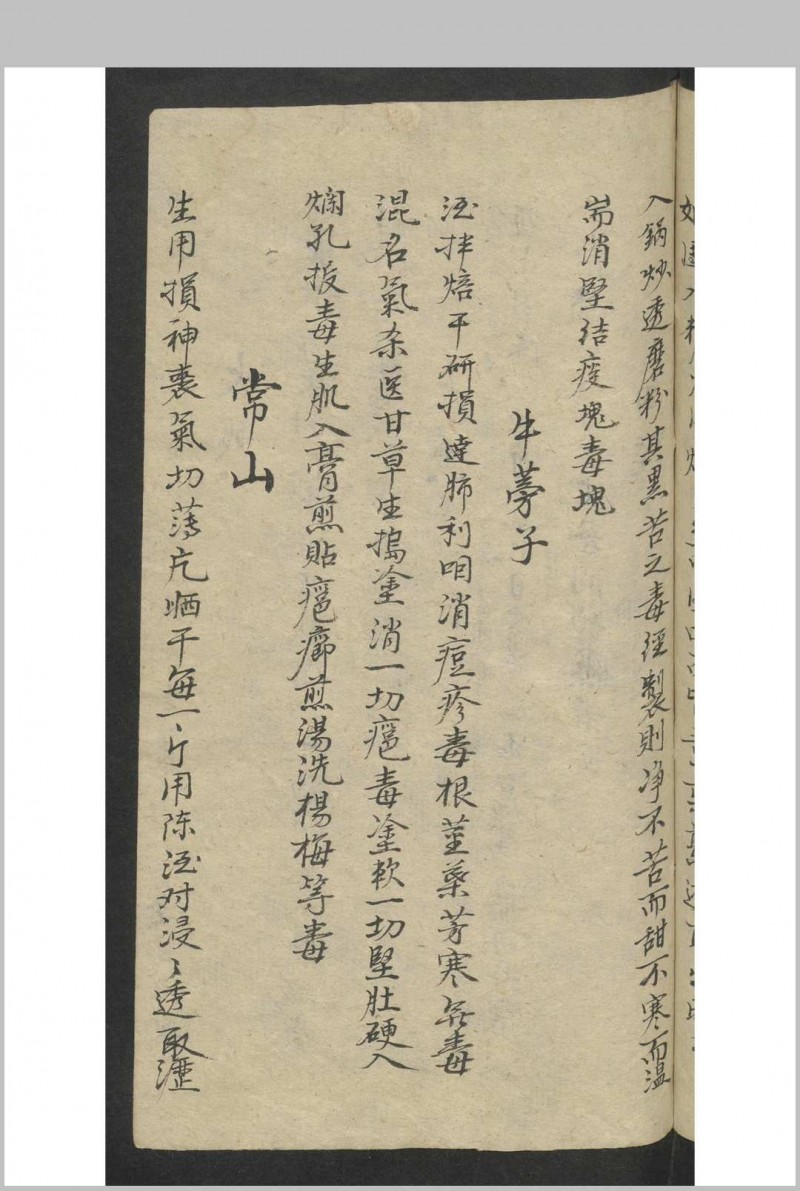 入鍋炒透磨粉其黑苦之毒经製則净不苦而甜不寒而温
耑消堅结痰塊毒塊
牛蒡子
酒拌焙干研損達肺利咽消痘疹毒根莖葉芳寒無毒
混名氣杀医甘草生搗塗消一切瘡毒塗軟一切堅肚硬入
爛孔拔毒生肌入膏煎貼瘡癤煎湯洗楊梅等毒
常山
生用損神喪氣切薄片晒干每一斤用陈酒对浸〻透取瀝